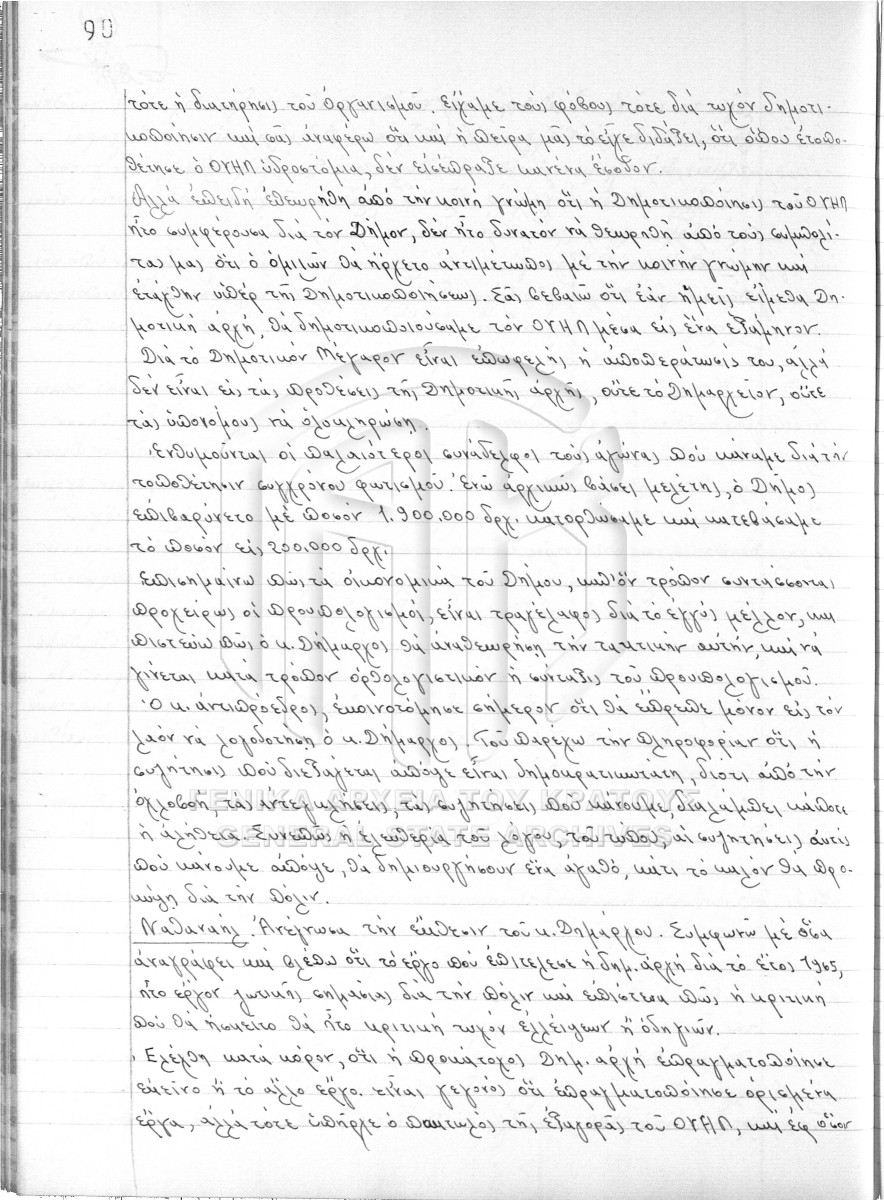 90
τότε ἡ διατήρησις τοῦ Ὀργανισμοῦ. Εἴχαμε τούς φόβους τότε διά τυχόν δημοτι-
κοποίησιν καί σᾶς ἀναφέρω ὅτι καί ἡ πεῖρα μᾶς τό εἶχε διδάξει, ὅτι ὅπου ἐτοπο-
θέτησε ὁ ΟΥΗΛ ὑδροστόμια, δέν εἰσέπραξε κανένα ἔσοδον.
Ἀλλά ἐπειδή ἐθεωρήθη ἀπό τήν κοινή γνώμη ὅτι ἡ Δημοτικοποίησις τοῦ ΟΥΗΛ
ἦτο συμφέρουσα διά τόν Δῆμον, δέν ἦτο δυνατόν νά θεωρηθῆ ἀπό τούς συμπολί-
τας μας ὅτι ὁ ὁμιλῶν θά ἤρχετο ἀντιμέτωπος μέ τήν κοινήν γνώμην καί
ἐτάχθην ὑπέρ τῆς Δημοτικοποιήσεως. Σᾶς βεβαιῶ ὅτι ἐάν ἡμεῖς εἴμεθα Δη-
μοτική ἀρχή, θά δημοτικοποιούσαμε τόν ΟΥΗΛ μέσα εἰς ἕνα ἑξάμηνον.
Διά τό Δημοτικόν Μέγαρον εἶναι ἐπωφελής ἡ ἀποπεράτωσίς του, ἀλλά
δέν εἶναι εἰς τάς προθέσεις τῆς Δημοτικῆς ἀρχῆς, οὔτε τό Δημαρχεῖον, οὔτε
τάς ὑπονόμους νά ὁλοκληρώση.
Ἐνθυμοῦνται οἱ παλαιότεροι συνάδελφοι τούς ἀγῶνας πού κάναμε διά τήν
τοποθέτησιν συγχρόνου φωτισμοῦ. Ἐνῶ ἀρχικῶς βάσει μελέτης, ὁ Δῆμος
ἐπιβαρύνετο μέ ποσόν 1.900.000 δρχ. κατορθώσαμε καί κατεβάσαμε
τό ποσόν εἰς 200.000 δρχ.
Ἐπισημαίνω πώς τά οἰκονομικά τοῦ Δήμου, καθ' ὅν τρόπον συντάσσονται
προχείρως οἱ προυπολογισμοί, εἶναι τραγέλαφος διά τό ἐγγύς μέλλον, και
πιστεύω πώς ὁ κ. Δήμαρχος θά ἀναθεωρήση τήν τακτικήν αὐτήν, καί νά
γίνεται κατά τρόπον ὀρθολογιστικόν ἡ σύνταξις τοῦ προυπολογισμοῦ.
Ὁ κ. ἀντιπρόεδρος, ἐκαινοτόμησε σήμερον ὅτι θά ἔπρεπε μόνον εἰς τόν
λαόν νά λογοδοτήση ὁ κ. Δήμαρχος. Τοῦ παρέχω τήν πληροφορίαν ὅτι ἡ
συζήτησις πού διεξάγεται ἀπόψε εἶναι δημοκρατικωτάτη, διότι ἀπό τήν
ὀχλοβοή, τάς ἀντεγκλήσεις, τάς συζητήσεις πού κάνουμε, διαλάμπει κάποτε
ἡ ἀλήθεια. Συνεπῶς ἡ ἐλευθερία τοῦ λόγου, τοῦ τύπου, αἱ συζητήσεις αὐτές
πού κάνουμε ἀπόψε, θά δημιουργήσουν ἕνα ἀγαθό, κάτι τό καλόν θά προ-
κύψη διά τήν πόλιν.
Ναθαναήλ. Ἀνέγνωσα τήν ἔκθεσιν τοῦ κ. Δημάρχου. Συμφωνῶ μέ ὅσα
ἀναγράφει καί βλέπω ὅτι τό ἔργο πού ἐπιτέλεσε ἡ δημ. ἀρχή διά τό ἔτος 1965,
ἦτο ἔργον ζωτικῆς σημασίας διά τήν πόλιν καί ἐπίστευα πώς ἡ κριτική
πού θά ἠσκεῖτο θά ἦτο κριτική τυχόν ἐλλείψεων ἤ ὁδηγιῶν.
Ἐλέχθη κατά κόρον, ὅτι ἡ προκάτοχος Δημ. ἀρχή ἐπραγματοποίησε
ἐκεῖνο ἤ τό ἄλλο ἔργο. εἶναι γεγονός ὅτι ἐπραγματοποίησε ὁρισμένα
ἔργα, ἀλλά τότε ὑπῆρχε ὁ πακτωλός τῆς ἐξαγορᾶς τοῦ ΟΥΗΛ, καί ἐφ' ὅσον
ΓΕΝΙΚΑ ΑΡΧΕΙΑ ΤΟΥ ΚΡΑΤΟΥΣ
GENERAL STATE ARCHIVES